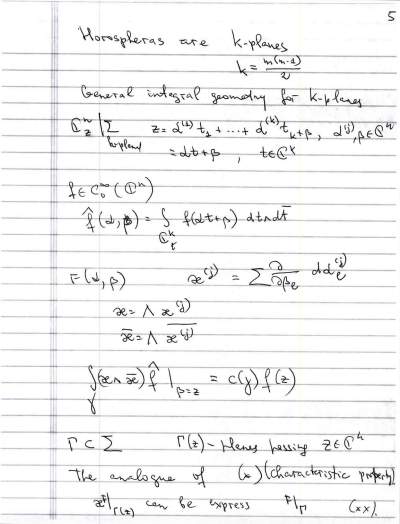 5
Horospheras are k-planes
k = m(m-1)/2
General integral geometry for k-planes
ℂⁿ_z | Σ z = α⁽¹⁾t₁ + ··· + α⁽ᵏ⁾t_k + β, α⁽ʲ⁾, β ∈ ℂⁿ
k-planes = αt + β, t ∈ ℂᵏ
f ∈ C₀^∞(ℂⁿ)
f̂(α, β) = ∫_{ℂᵏ_t} f(αt + β) dt∧dt̄
F(α, β) æ⁽ʲ⁾ = Σ ∂/∂β_ℓ dα_ℓ⁽ʲ⁾
æ = Λ æ⁽ʲ⁾
ǣ = Λ \overline{æ⁽ʲ⁾}
∫_γ (æ ∧ ǣ) f̂ |_{β=z} = c(γ) f(z)
Γ ⊂ Σ Γ(z) - planes passing z ∈ ℂⁿ
The analogue of (x) (characteristic property)
æF|_{Γ(z)} can be express F|_Γ (xx).